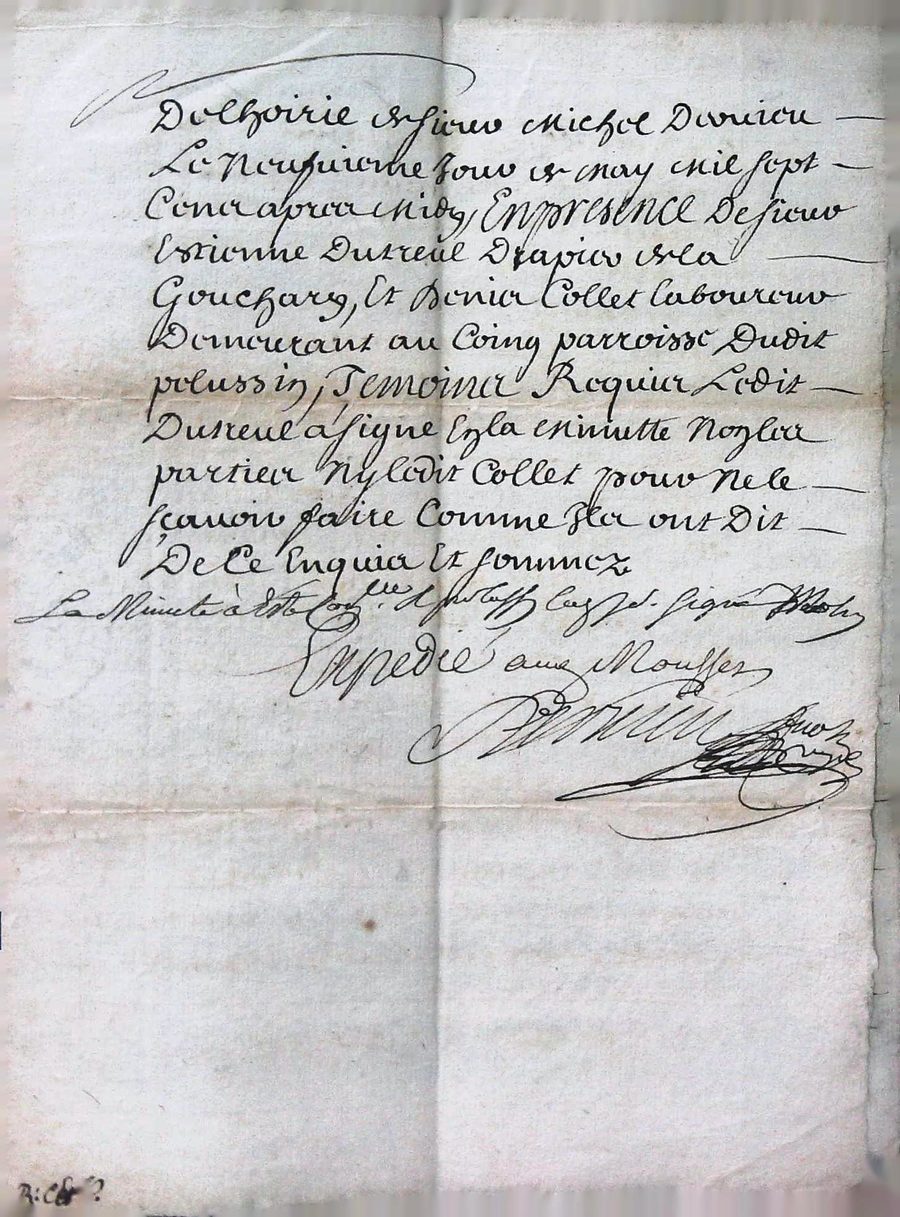 De lhoirie de sieur Michel Dervieu
Le Neufvieme Jour de May Mil sept
Cens apres Midy, En presence De sieur
Estienne Dutreul Drapier de la
Gouchary, Et Denis Collet laboureur
Demeurant au Coing parroisse Dudit
pelussin, Temoins Requis Ledit
Dutreul à signé En la Minutte Non les
parties Ny ledit Collet pour Ne le
sçavoir faire Comme Ils ont Dit
De Ce Enquis Et sommez
La Minute à Esté signé
Expedié aux Mousses
Dervieu